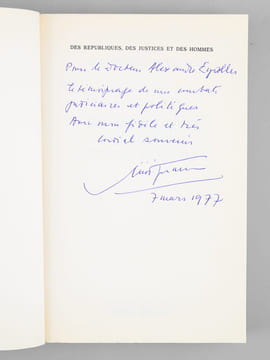 DES REPUBLIQUES, DES JUSTICES ET DES HOMMES
Pour le Docteur Alexandre
le témoignage de mes combats
judiciaires et politiques
Avec mon fidèle et très
cordial souvenir
7 mars 1977